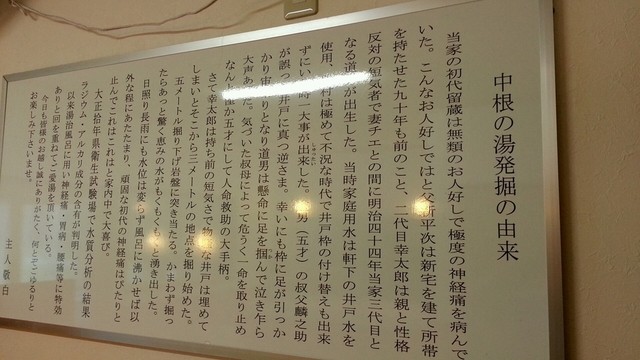 中根の湯発掘の由来
当家の初代留蔵は無類のお人好しで極度の神経痛を病んで
いた。こんなお人好しではと父新平次は新宅を建て所帯
を持たせた九十年も前のこと、二代目幸太郎は親と性格
反対の短気者で妻チエとの間に明治四十四年当家三代目と
なる道男が出生した。当時家庭用水は軒下の井戸水を
使用、村は極めて不況な時代で井戸枠の付け替えも出来
ずにいた時一大事が出来した。男（五才）の叔父麟之助
が誤って井戸に真っ逆さま。幸いにも枠に足が引っか
かり宙ぶらりとなり道男は懸命に足を掴んで泣き乍ら
大声あげた。気づいた叔母によって危うく一命を取り止め
なんと僅か五才にして人命救助の大手柄。
さて幸太郎は持ち前の短気さで物騒な井戸は埋めて
しまいとそこから三メートルの地点を掘り始めた。
五メートル掘り下げ岩盤に突き当たる。かまわず掘っ
たらあっと驚く恵みの水がもくもくもくと湧き出した。
日照り長雨にも水位は変らず風呂に沸かせば以
外な程にあたたまり、頑固な初代の神経痛はぴたりと
止んでこれはこれはと家内中で大喜び。
大正拾年県衛生試験場で水質分析の結果
ラジウム・アルカリ成分の含有が判明した。
以来湯治風呂に用い神経痛・胃病・腰痛等に特効
ありと回を重ねてご愛湯を頂いている。
今日も皆様のお越し誠にありがたく、何とぞごゆるりと
お楽しみ下さいませ。
主人敬白